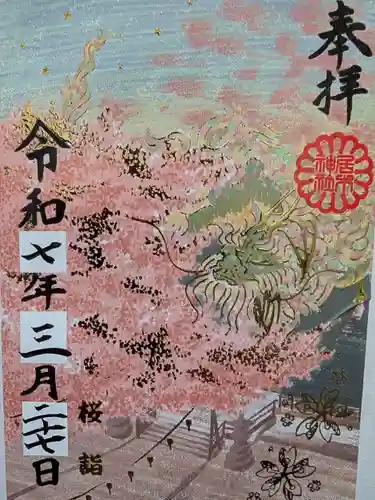 奉拝
令和七年三月二十七日
桜詣
居木神社